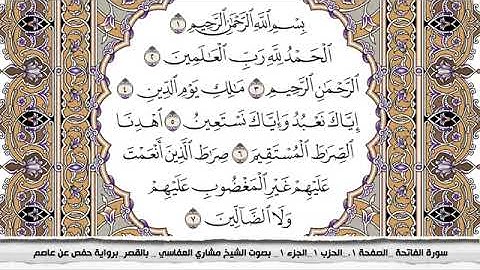 بِسْمِ ٱللَّهِ ٱلرَّحْمَٰنِ ٱلرَّحِيمِ ١
ٱلْحَمْدُ لِلَّهِ رَبِّ ٱلْعَٰلَمِينَ ٢
ٱلرَّحْمَٰنِ ٱلرَّحِيمِ ٣ مَٰلِكِ يَوْمِ ٱلدِّينِ ٤
إِيَّاكَ نَعْبُدُ وَإِيَّاكَ نَسْتَعِينُ ٥ ٱهْدِنَا
ٱلصِّرَٰطَ ٱلْمُسْتَقِيمَ ٦ صِرَٰطَ ٱلَّذِينَ أَنْعَمْتَ
عَلَيْهِمْ غَيْرِ ٱلْمَغْضُوبِ عَلَيْهِمْ
وَلَا ٱلضَّآلِّينَ ٧
سورة الفاتحة _ الصفحة ١_ الحزب ١_ الجزء ١_ بصوت الشيخ مشاري العفاسي _ بالقصر_برواية حفص عن عاصم